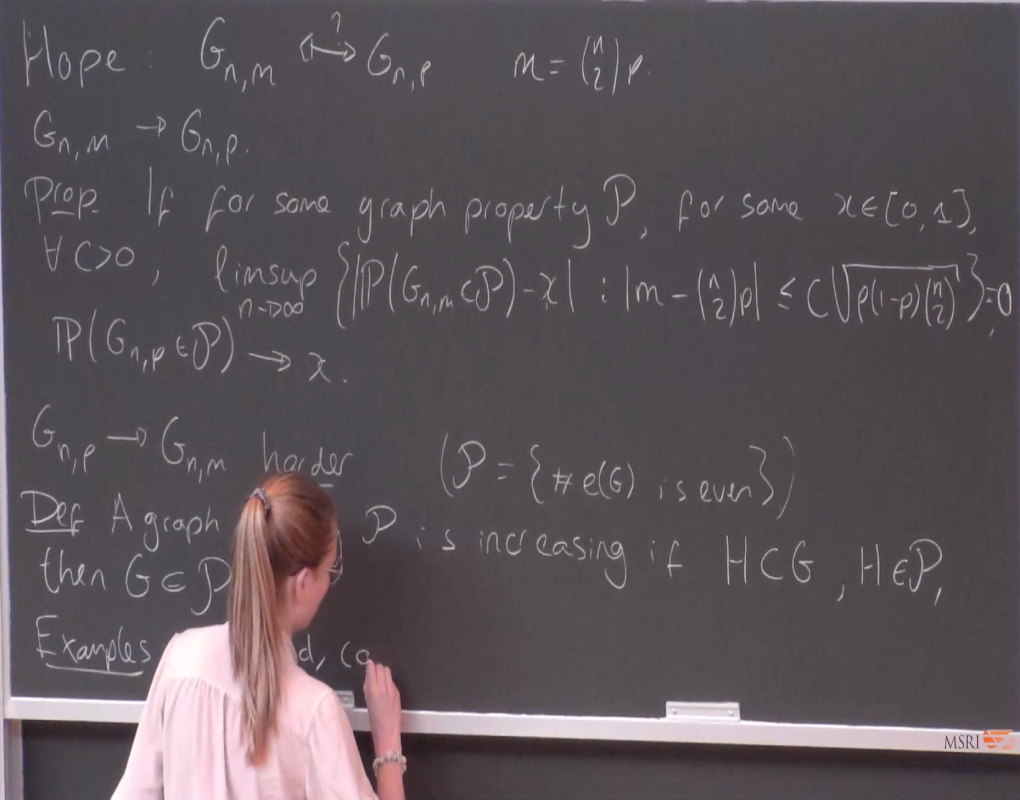 Hope: G_{n,m} ⟷^? G_{n,p} m = \binom{n}{2} p.
G_{n,m} → G_{n,p}.
Prop. If for some graph property P, for some x∈[0,1],
∀ C>0, limsup_{n→∞} {|ℙ(G_{n,m}∈P) - x| : |m - \binom{n}{2}p| ≤ C√{p(1-p)\binom{n}{2}}} = 0,
ℙ(G_{n,p}∈P) → x.
G_{n,p} → G_{n,m} harder (P = {# e(G) is even})
Def A graph P is increasing if H⊂G, H∈P,
then G∈P
Examples
MSRI